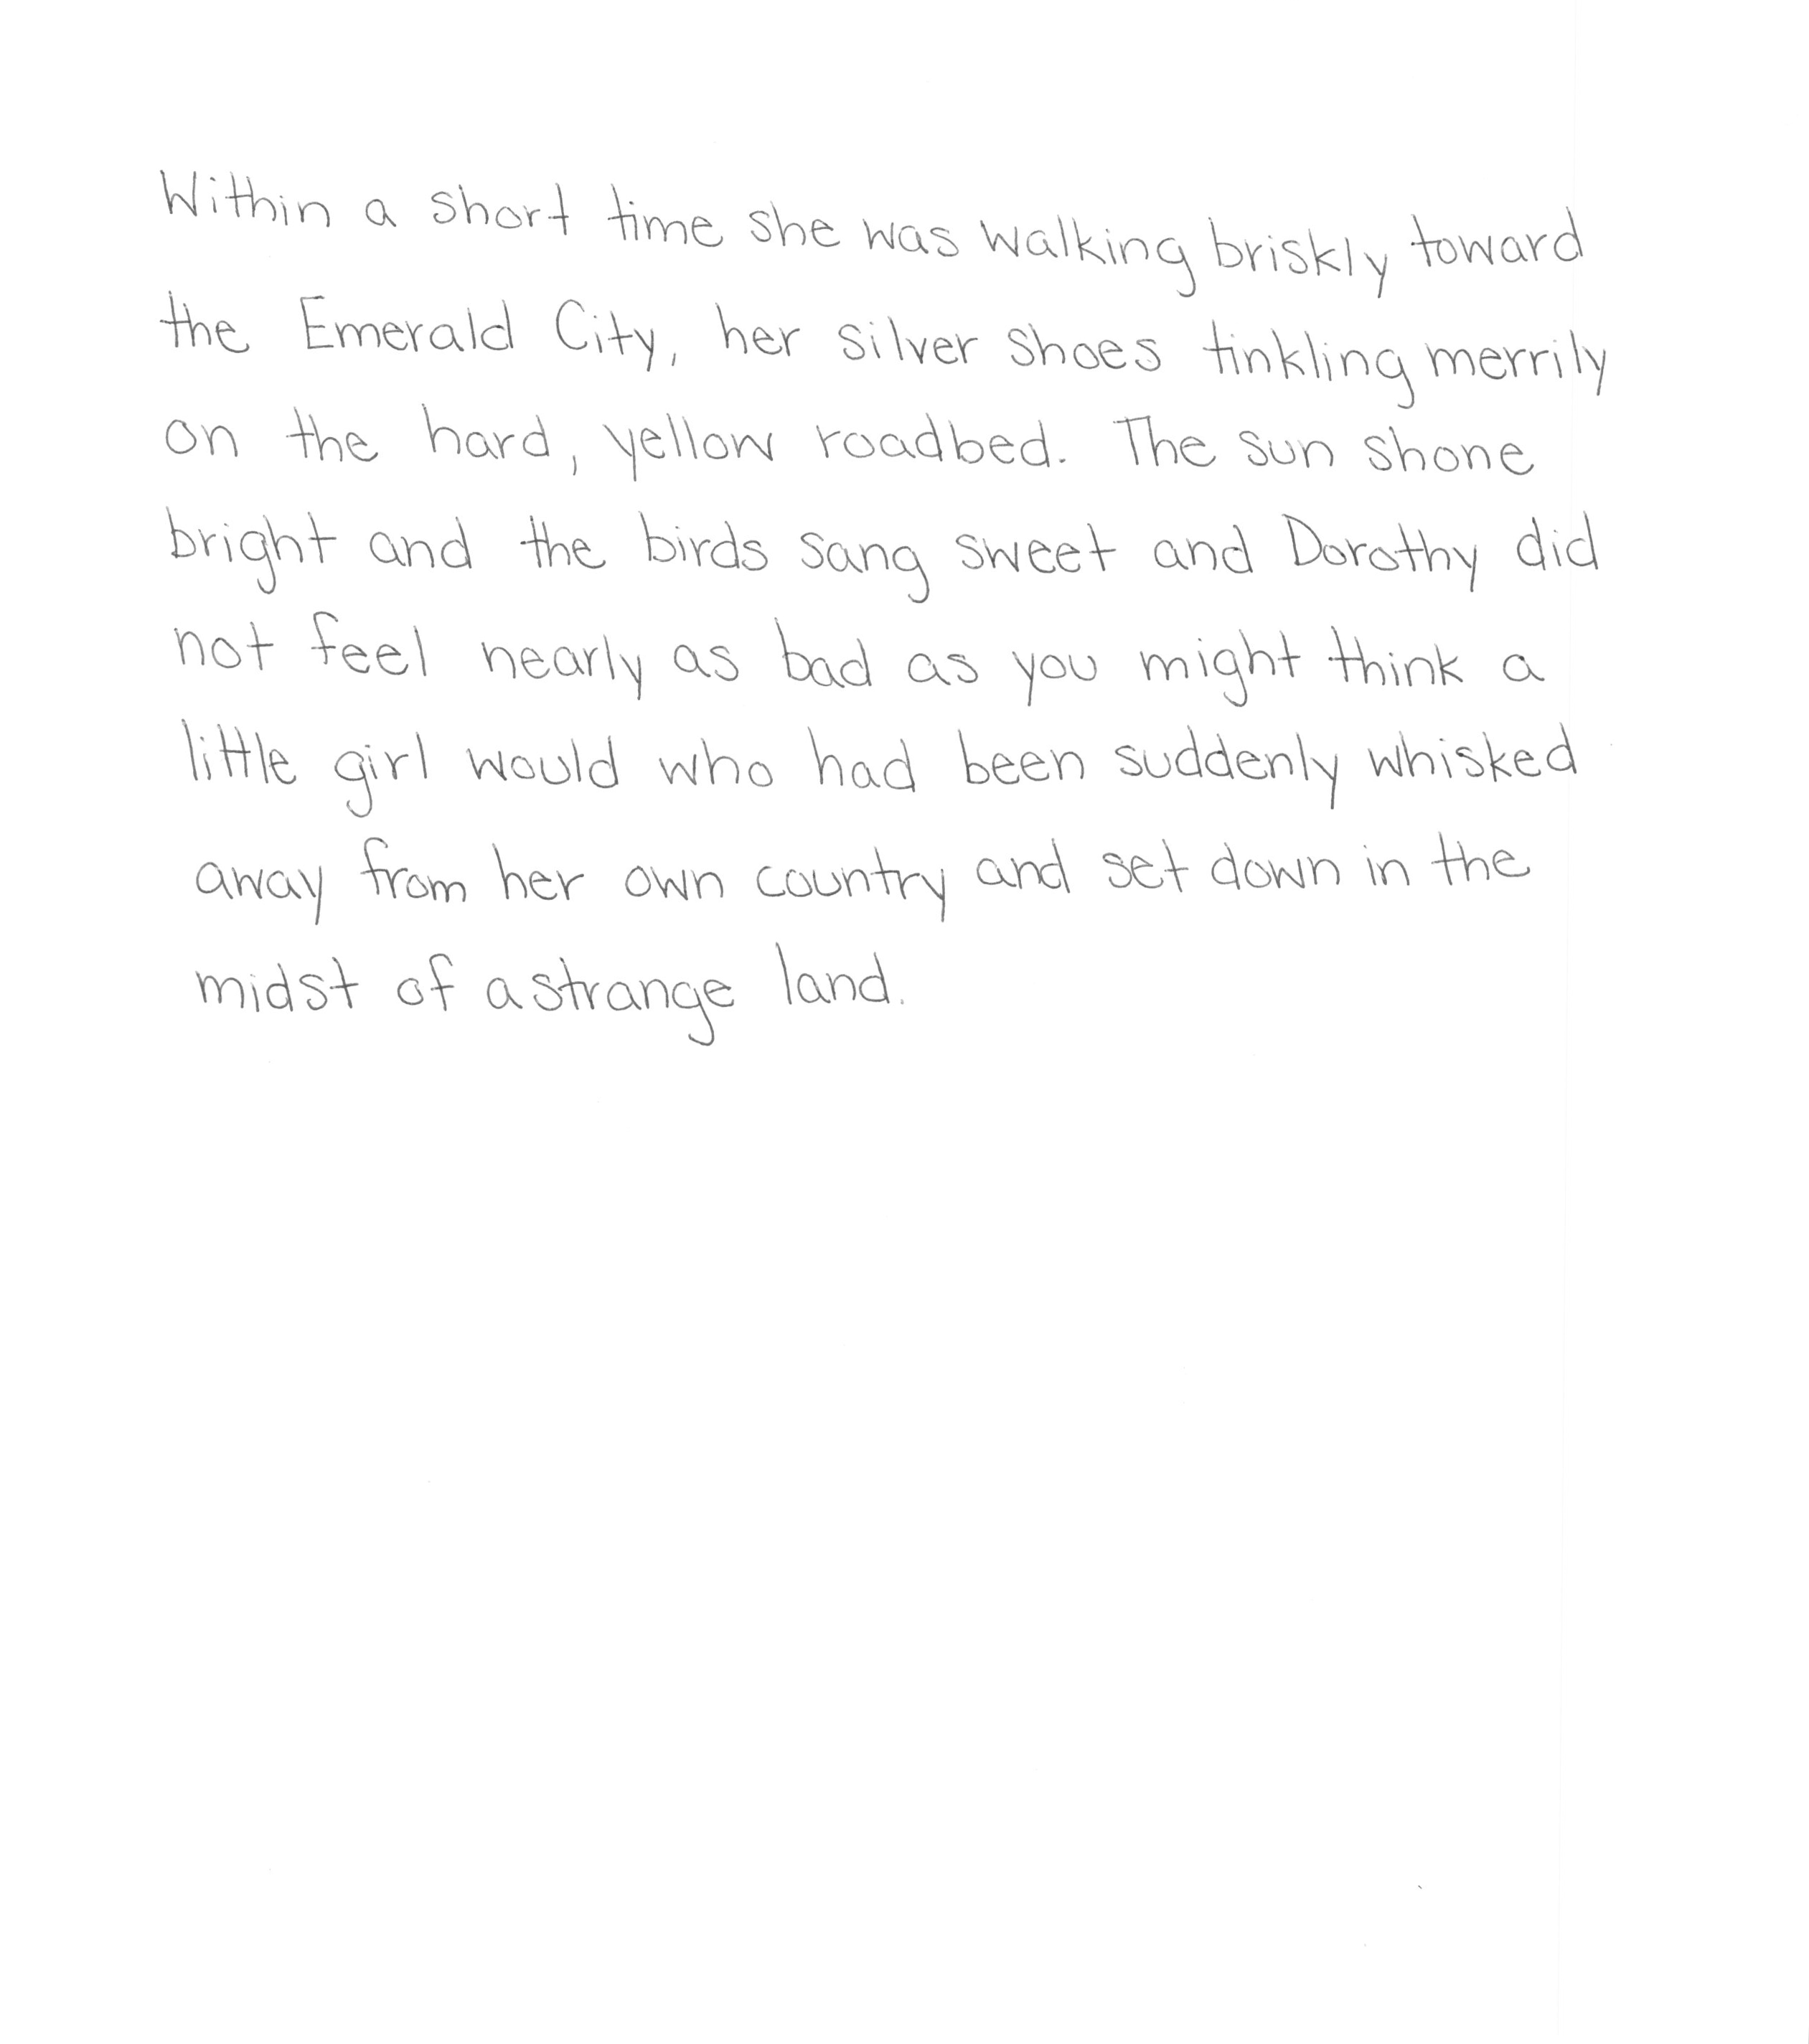 Within a short time she was walking briskly toward
the Emerald City, her silver shoes tinkling merrily
on the hard, yellow roadbed. The sun shone
bright and the birds sang sweet and Dorothy did
not feel nearly as bad as you might think a
little girl would who had been suddenly whisked
away from her own country and set down in the
midst of a strange land.